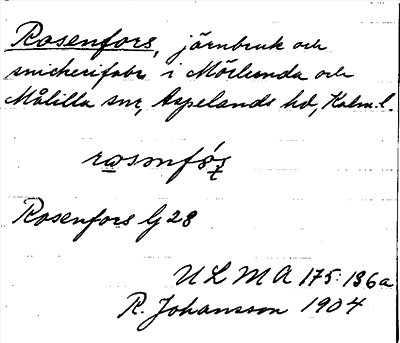 Rosenfors, järnbruk och
snickerifabr i Mörlunda och
Målilla snr, Aspelands hd, Kalm. l.
Rosenfors G 28
ULMA 175:136a
R. Johansson 1904